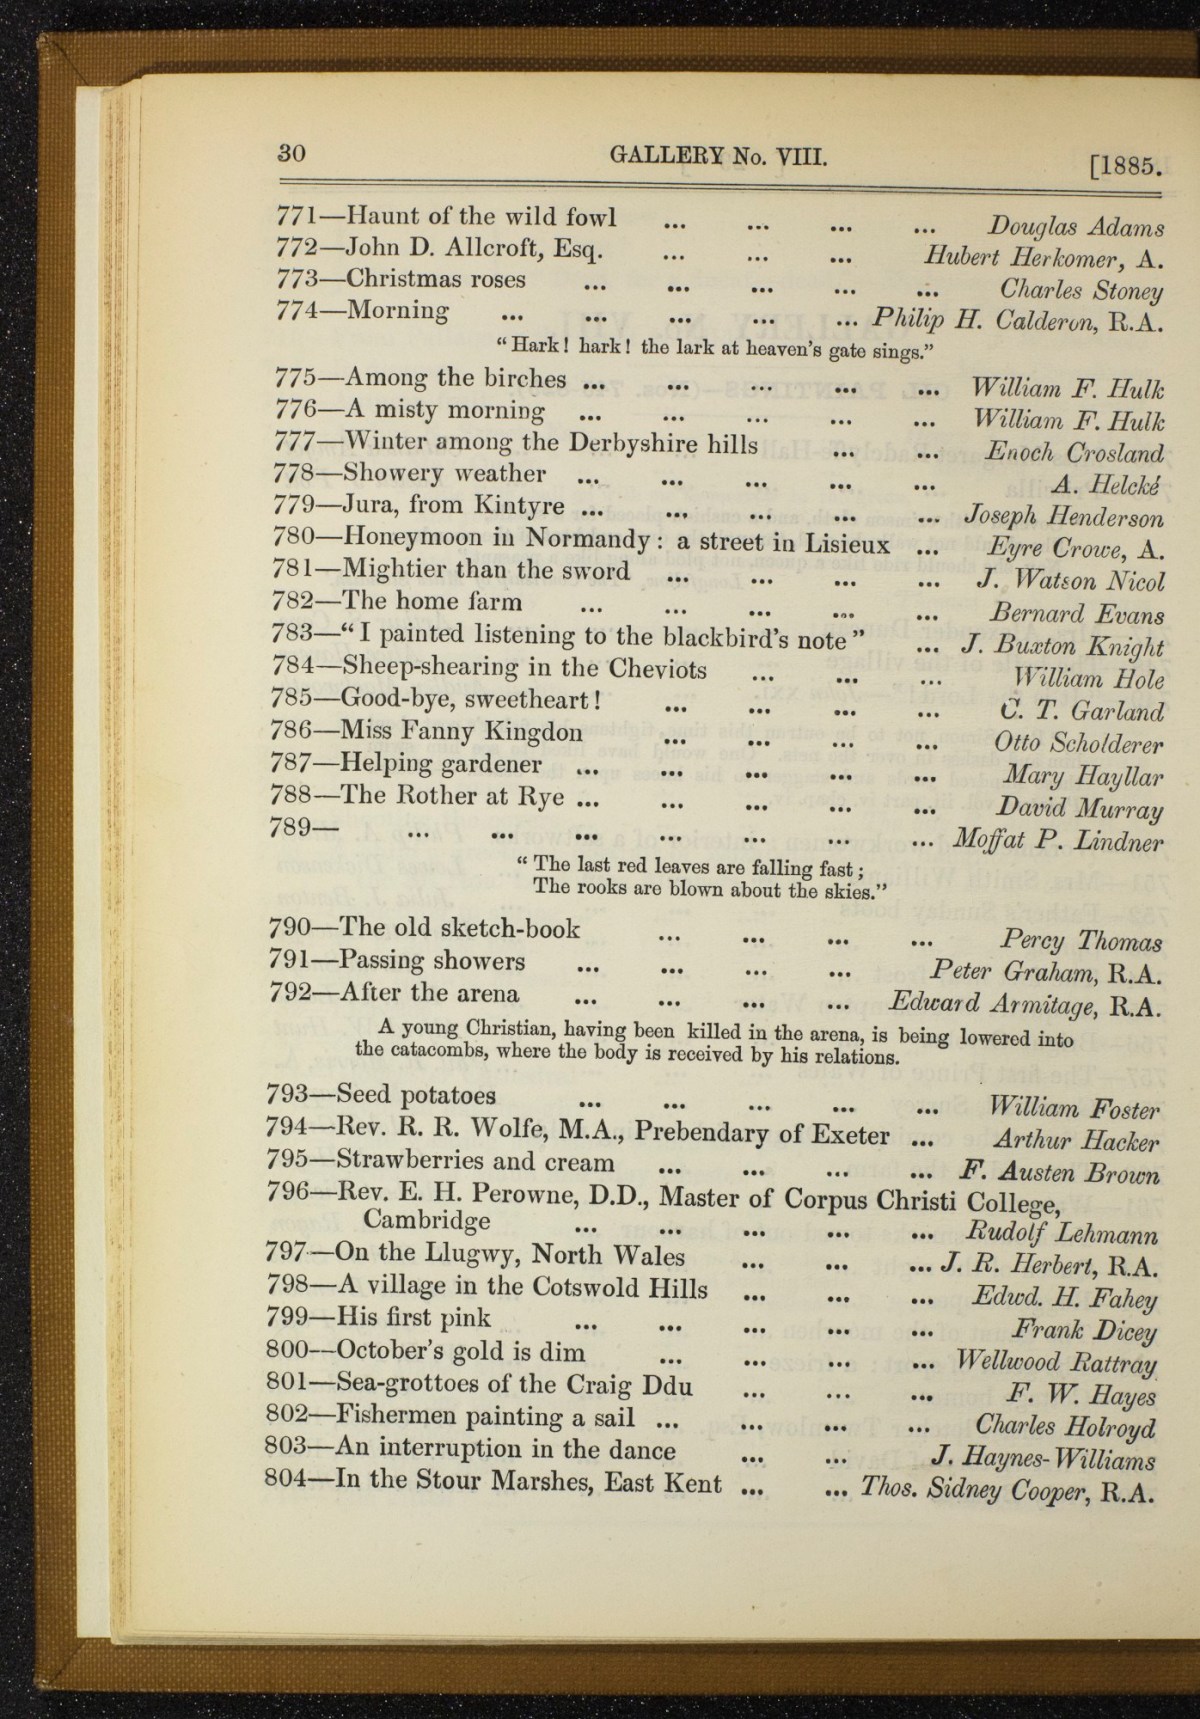 30 GALLERY No. VIII. [1885.
771—Haunt of the wild fowl ... ... ... ... Douglas Adams
772—John D. Allcroft, Esq. ... ... ... Hubert Herkomer, A.
773—Christmas roses ... ... ... ... ... Charles Stoney
774—Morning ... ... ... ... ... Philip H. Calderon, R.A.
"Hark! hark! the lark at heaven's gate sings."
775—Among the birches ... ... ... ... ... William F. Hulk
776—A misty morning ... ... ... ... ... William F. Hulk
777—Winter among the Derbyshire hills ... ... Enoch Crosland
778—Showery weather ... ... ... ... ... A. Helcké
779—Jura, from Kintyre ... ... ... ... ... Joseph Henderson
780—Honeymoon in Normandy: a street in Lisieux ... Eyre Crowe, A.
781—Mightier than the sword ... ... ... ... J. Watson Nicol
782—The home farm ... ... ... ... ... Bernard Evans
783—"I painted listening to the blackbird's note" ... J. Buxton Knight
784—Sheep-shearing in the Cheviots ... ... ... William Hole
785—Good-bye, sweetheart! ... ... ... ... C. T. Garland
786—Miss Fanny Kingdon ... ... ... ... Otto Scholderer
787—Helping gardener ... ... ... ... ... Mary Hayllar
788—The Rother at Rye ... ... ... ... ... David Murray
789— ... ... ... ... ... ... ... Moffat P. Lindner
"The last red leaves are falling fast;
The rooks are blown about the skies."
790—The old sketch-book ... ... ... ... Percy Thomas
791—Passing showers ... ... ... ... Peter Graham, R.A.
792—After the arena ... ... ... ... Edward Armitage, R.A.
A young Christian, having been killed in the arena, is being lowered into
the catacombs, where the body is received by his relations.
793—Seed potatoes ... ... ... ... ... William Foster
794—Rev. R. R. Wolfe, M.A., Prebendary of Exeter ... Arthur Hacker
795—Strawberries and cream ... ... ... ... F. Austen Brown
796—Rev. E. H. Perowne, D.D., Master of Corpus Christi College,
Cambridge ... ... ... ... ... Rudolf Lehmann
797—On the Llugwy, North Wales ... ... ... J. R. Herbert, R.A.
798—A village in the Cotswold Hills ... ... ... Edwd. H. Fahey
799—His first pink ... ... ... ... ... Frank Dicey
800—October's gold is dim ... ... ... ... Wellwood Rattray
801—Sea-grottoes of the Craig Ddu ... ... ... F. W. Hayes
802—Fishermen painting a sail ... ... ... ... Charles Holroyd
803—An interruption in the dance ... ... J. Haynes-Williams
804—In the Stour Marshes, East Kent ... ... Thos. Sidney Cooper, R.A.